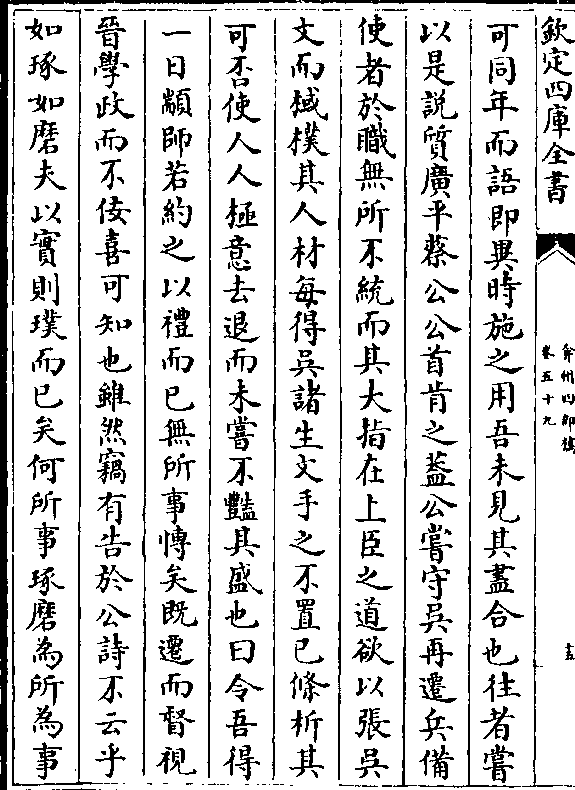 欽定四庫全書
弇州四部稿
卷五十九
可同年而語即異時施之用吾未見其盡合也往者嘗
以是說質廣平蔡公公首肯之葢公嘗守吳再遷兵備
使者於職無所不統而其大指在上臣之道欲以張吳
文而棫樸其人材每得吳諸生文手之不置已條析其
可否使人人極意去退而未嘗不豔其盛也曰令吾得
一日顓師若約之以禮而已無所事慱矣既遷而督視
晉學政而不佞喜可知也雖然竊有告於公詩不云乎
如琢如磨夫以實則璞而已矣何所事琢磨為所為事